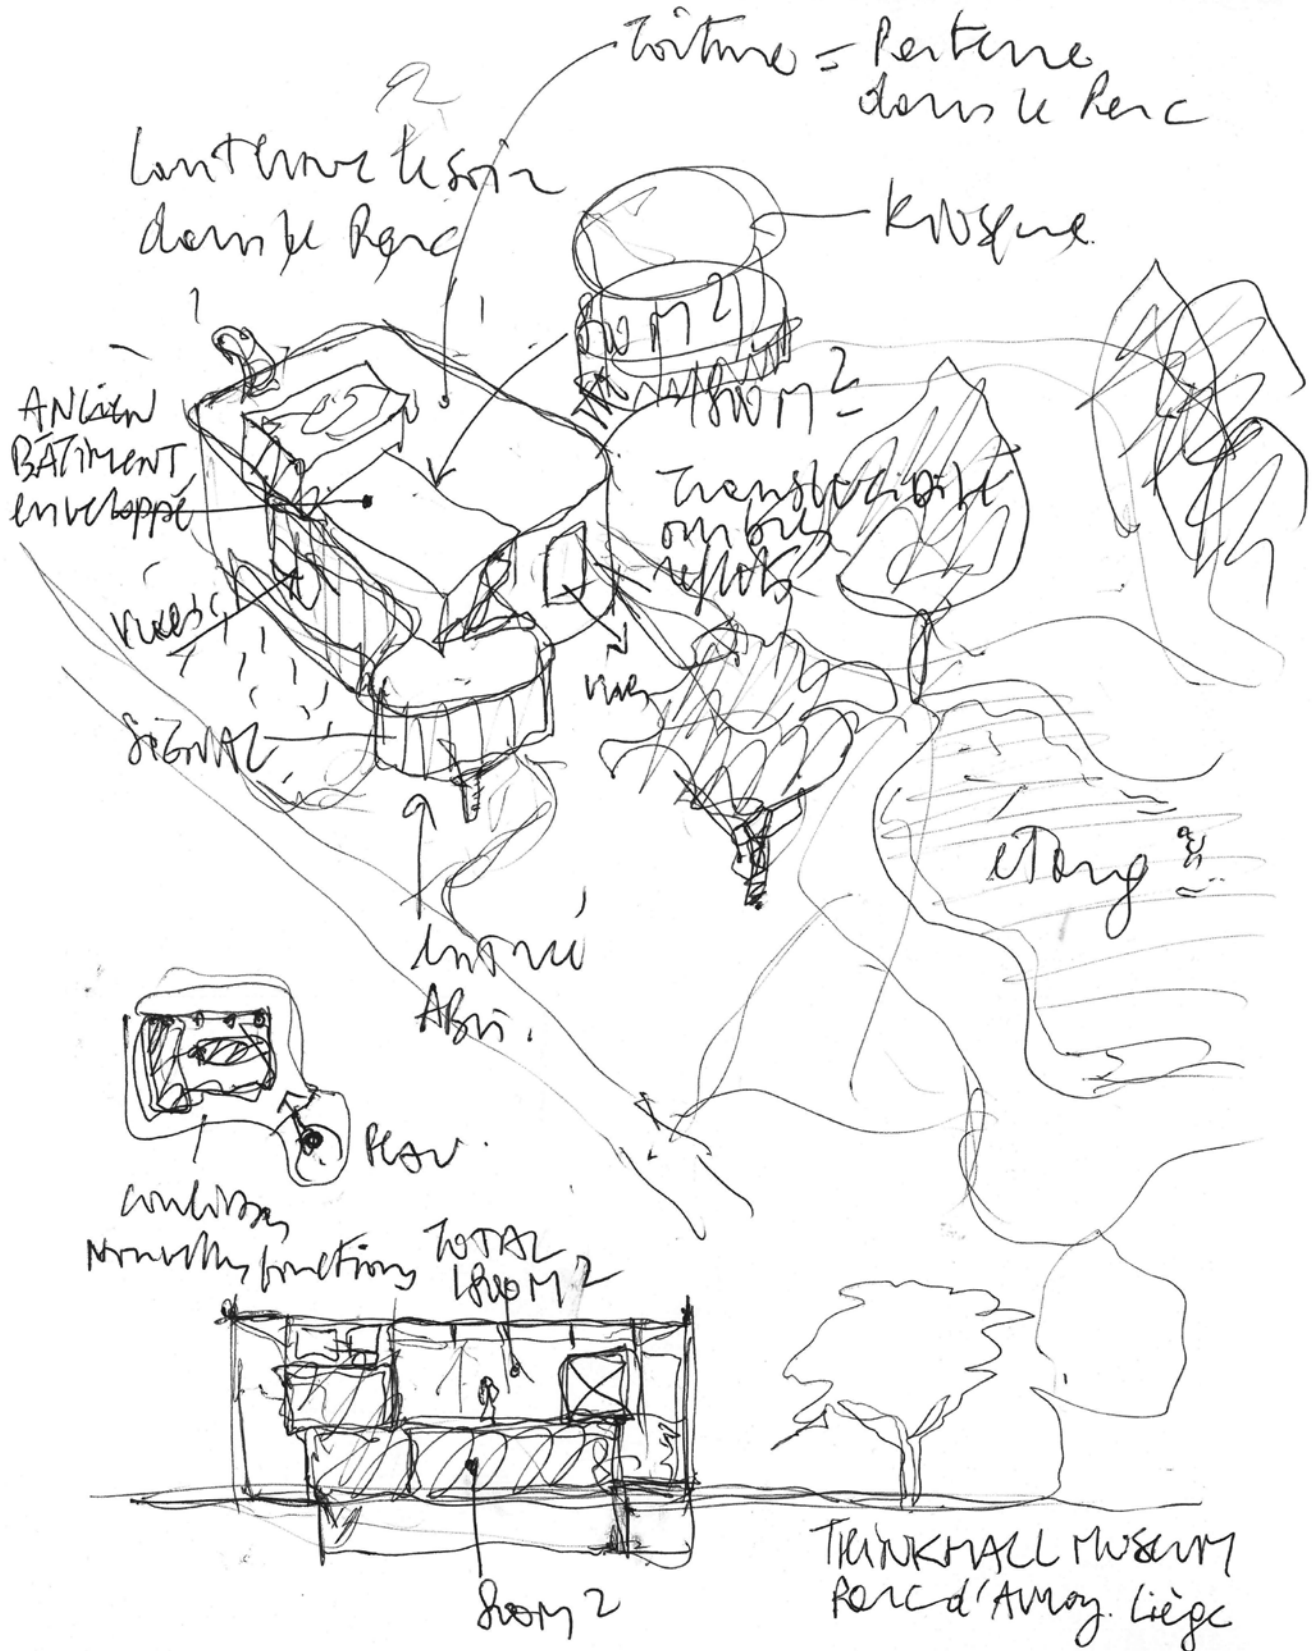 Toiture = Parterre
dans le Parc
Lanterne le soir
dans le Parc
Kiosque
800 M2
1800 M2
ANCIEN
BÂTIMENT
enveloppé
Translucidité
ombres
reflets
vues
vues
SIGNAL
étang
entrée
Abri.
PLAN.
coulisses
Nouvelles fonctions
TOTAL
1800 M2
800 M2
THINKHALL MUSEUM
Parc d'Avroy. Liège